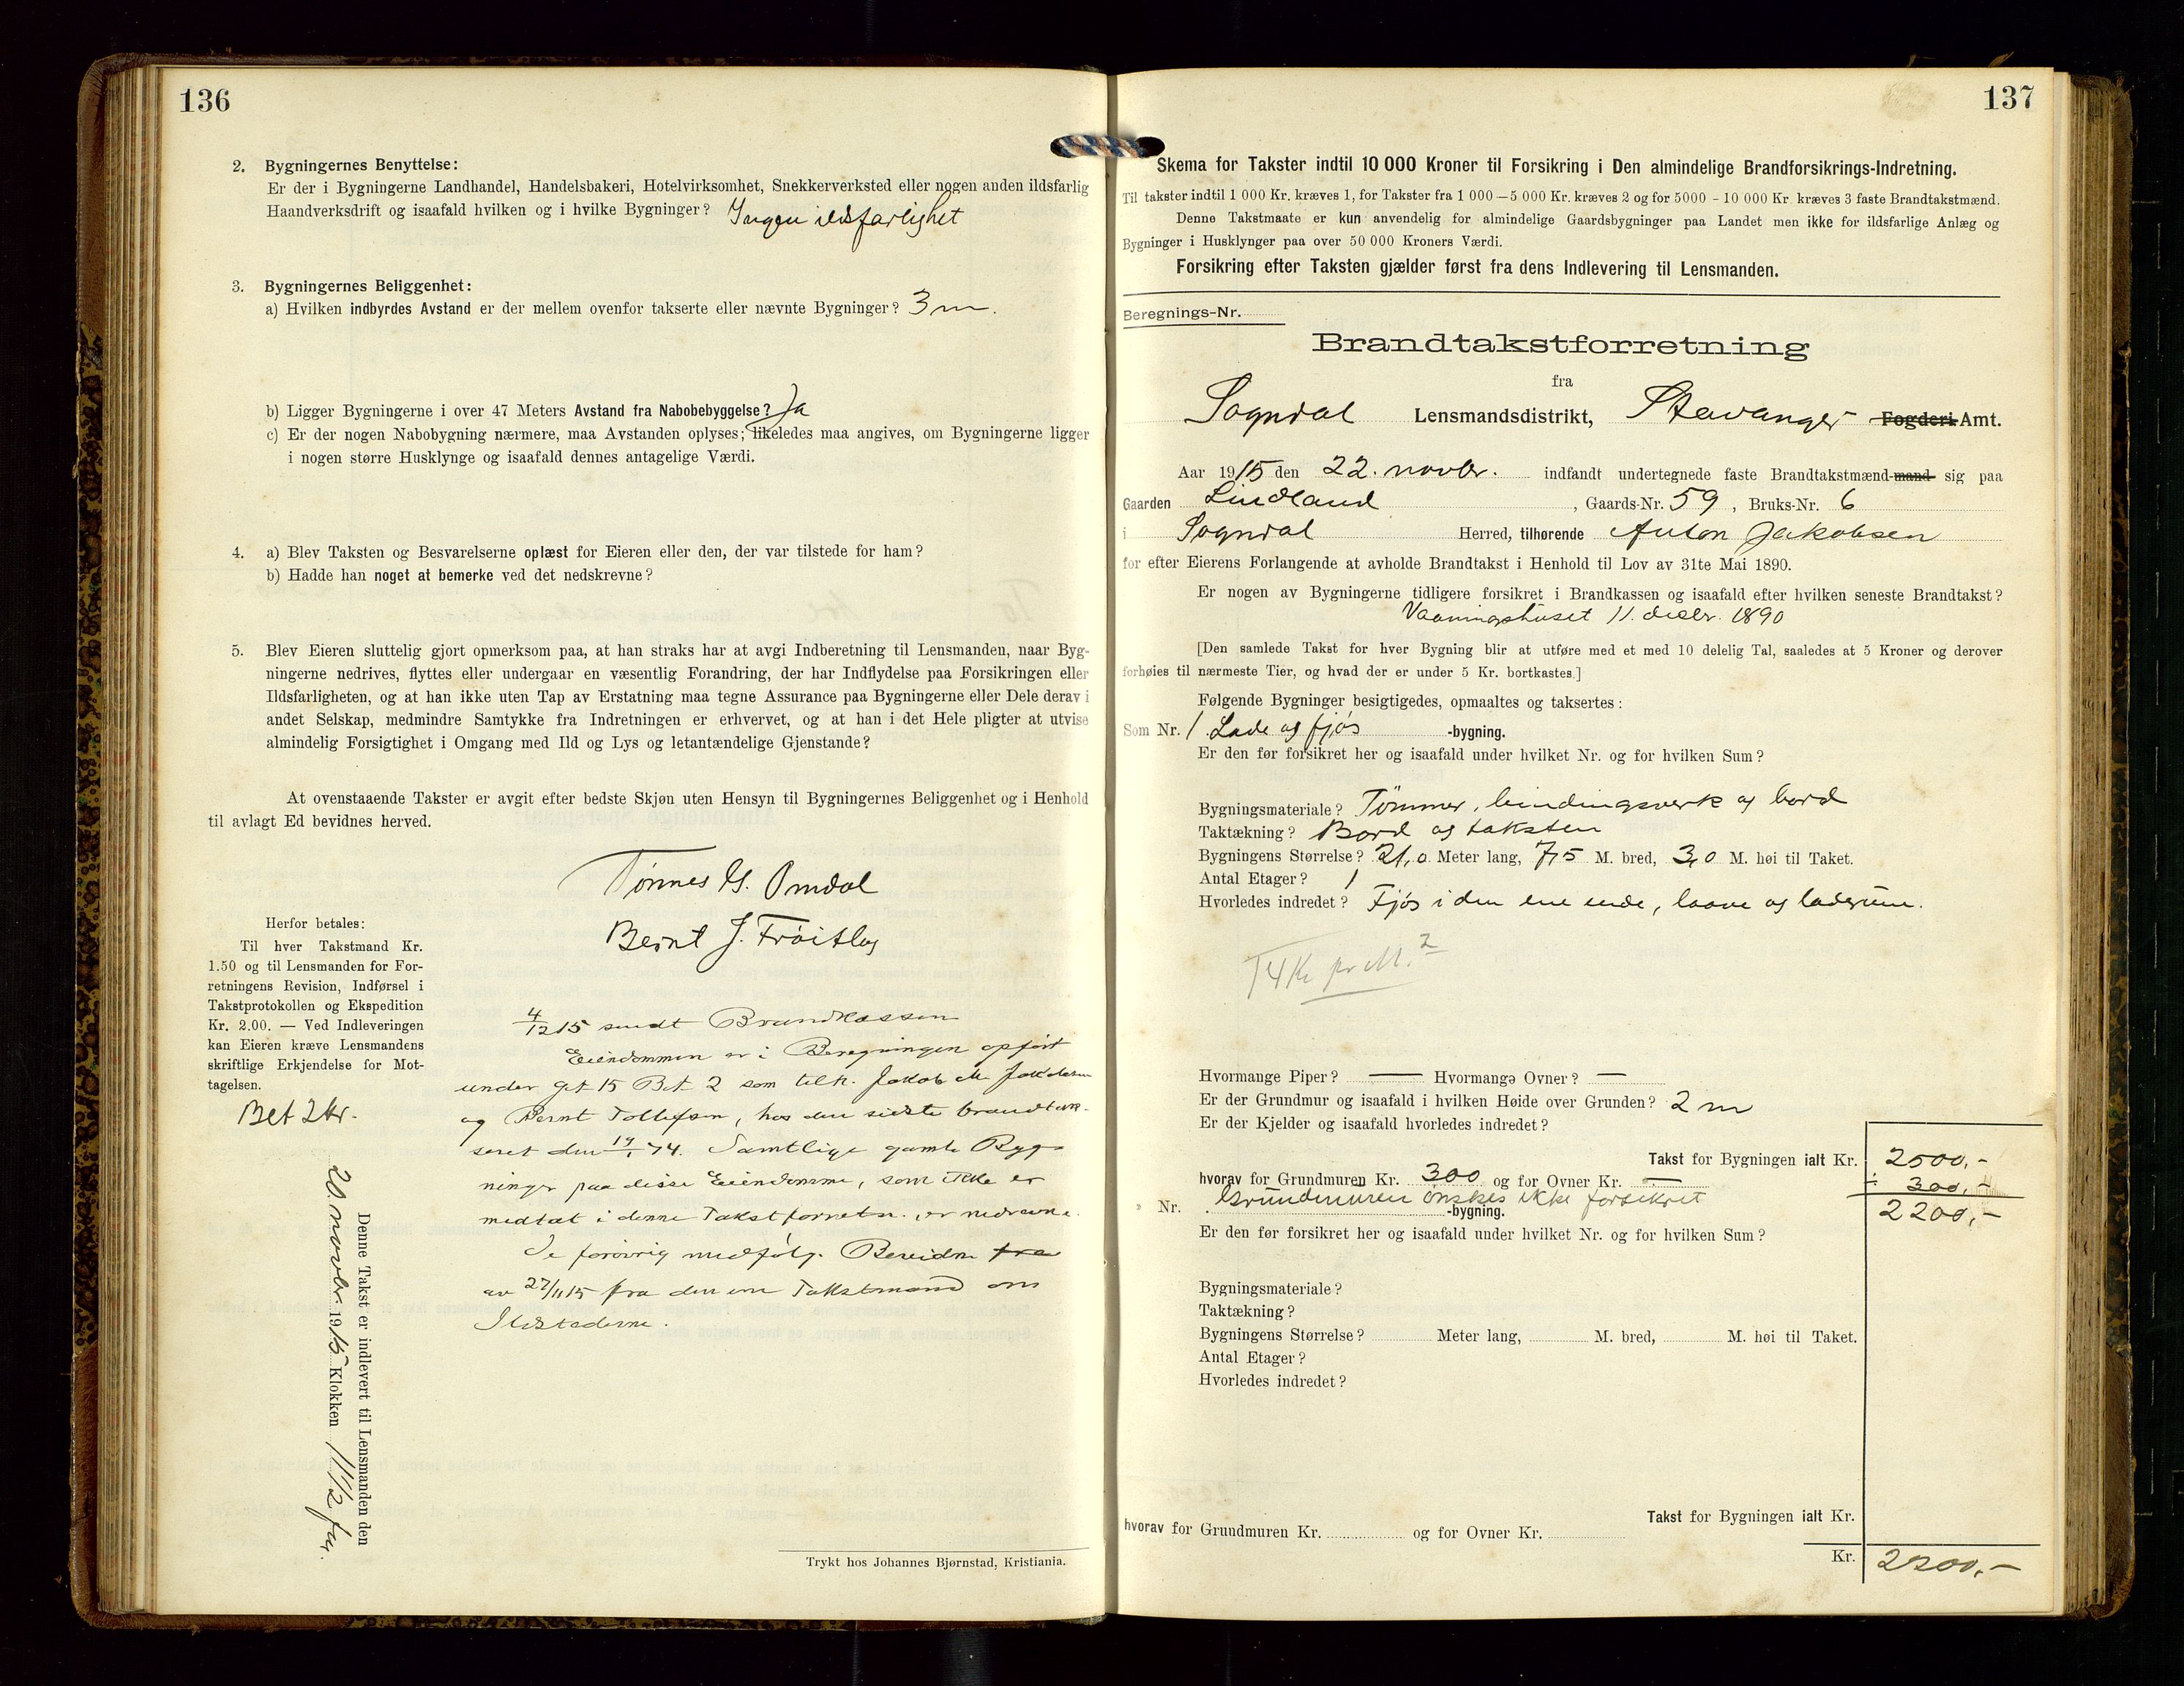 136
2. Bygningernes Benyttelse:
Er der i Bygningerne Landhandel, Handelsbakeri, Hotelvirksomhet, Snekkerverksted eller nogen anden ildsfarlig
Haandverksdrift og isaafald hvilken og i hvilke Bygninger? Ingen ildsfarlighet
3. Bygningernes Beliggenhet:
a) Hvilken indbyrdes Avstand er der mellem ovenfor takserte eller nævnte Bygninger? 3 m.
b) Ligger Bygningerne i over 47 Meters Avstand fra Nabobebyggelse? Ja
c) Er der nogen Nabobygning nærmere, maa Avstanden oplyses; likeledes maa angives, om Bygningerne ligger
i nogen større Husklynge og isaafald dennes antagelige Værdi.
4. a) Blev Taksten og Besvarelserne oplæst for Eieren eller den, der var tilstede for ham?
b) Hadde han noget at bemerke ved det nedskrevne?
5. Blev Eieren sluttelig gjort opmerksom paa, at han straks har at avgi Indberetning til Lensmanden, naar Byg-
ningerne nedrives, flyttes eller undergaar en væsentlig Forandring, der har Indflydelse paa Forsikringen eller
Ildsfarligheten, og at han ikke uten Tap av Erstatning maa tegne Assurance paa Bygningerne eller Dele derav i
andet Selskap, medmindre Samtykke fra Indretningen er erhvervet, og at han i det Hele pligter at utvise
almindelig Forsigtighet i Omgang med Ild og Lys og letantændelige Gjenstande?
At ovenstaaende Takster er avgit efter bedste Skjøn uten Hensyn til Bygningernes Beliggenhet og i Henhold
til avlagt Ed bevidnes herved.
Tønnes G. Omdal
Bernt J. Frøitlog
Herfor betales:
Til hver Takstmand Kr.
1.50 og til Lensmanden for For-
retningens Revision, Indførsel i
Takstprotokollen og Ekspedition
Kr. 2.00. — Ved Indleveringen
kan Eieren kræve Lensmandens
skriftlige Erkjendelse for Mot-
tagelsen.
Bet 2 kr.
4/12 15 sendt Brandkassen
Eiendommen er i Beregningen opført
under Get 15 Bet 2 som tilh. Jakob M Jakobsen
og Bernt Tollefsen, hos den sidste brandtak-
seret den 19/1 74. Samtlige gamle Byg-
ninger paa disse Eiendomme, som ikke er
medtat i denne Takstforretn. er nedrevne.
Se forøvrig medfølg. Bevidn fra
av 27/11 15 fra den ene Takstmand om
Ildstederne.
Denne Takst er indlevert til Lensmanden den
20. novbr. 1915 Klokken 11 1/2 fm.
Trykt hos Johannes Bjørnstad, Kristiania.
137
Skema for Takster indtil 10 000 Kroner til Forsikring i Den almindelige Brandforsikrings-Indretning.
Til takster indtil 1 000 Kr. kræves 1, for Takster fra 1 000 – 5 000 Kr. kræves 2 og for 5000 - 10 000 Kr. kræves 3 faste Brandtakstmænd.
Denne Takstmaate er kun anvendelig for almindelige Gaardsbygninger paa Landet men ikke for ildsfarlige Anlæg og
Bygninger i Husklynger paa over 50 000 Kroners Værdi.
Forsikring efter Taksten gjælder først fra dens Indlevering til Lensmanden.
Beregnings-Nr.
Brandtakstforretning
fra
Sogndal Lensmandsdistrikt, Stavanger Fogderi Amt.
Aar 1915 den 22. novbr. indfandt undertegnede faste Brandtakstmænd-mand sig paa
Gaarden Lindland , Gaards-Nr. 59 , Bruks-Nr. 6
i Sogndal Herred, tilhørende Anton Jakobsen
for efter Eierens Forlangende at avholde Brandtakst i Henhold til Lov av 31te Mai 1890.
Er nogen av Bygningerne tidligere forsikret i Brandkassen og isaafald efter hvilken seneste Brandtakst?
Vaaningshuset 11. decbr. 1890
[Den samlede Takst for hver Bygning blir at utføre med et med 10 delelig Tal, saaledes at 5 Kroner og derover
forhøies til nærmeste Tier, og hvad der er under 5 Kr. bortkastes.]
Følgende Bygninger besigtigedes, opmaaltes og taksertes:
Som Nr. 1. Lade og fjøs -bygning.
Er den før forsikret her og isaafald under hvilket Nr. og for hvilken Sum?
Bygningsmateriale? Tømmer, bindingsverk og bord
Taktækning? Bord og taksten
Bygningens Størrelse? 21,0 Meter lang, 7,5 M. bred, 3,0 M. høi til Taket.
Antal Etager? 1
Hvorledes indredet? Fjøs i den ene ende, laave og laderum.
14 Kr pr M.²
Hvormange Piper? — Hvormange Ovner? —
Er der Grundmur og isaafald i hvilken Høide over Grunden? 2 m
Er der Kjelder og isaafald hvorledes indredet?
Takst for Bygningen ialt Kr. 2500,-
hvorav for Grundmuren Kr. 300 og for Ovner Kr. — ÷ 300,-
Grundmuren ønskes ikke forsikret
» Nr. -bygning. 2200,-
Er den før forsikret her og isaafald under hvilket Nr. og for hvilken Sum?
Bygningsmateriale?
Taktækning?
Bygningens Størrelse? Meter lang, M. bred, M. høi til Taket.
Antal Etager?
Hvorledes indredet?
Takst for Bygningen ialt Kr.
hvorav for Grundmuren Kr. og for Ovner Kr.
Kr. 2200,-